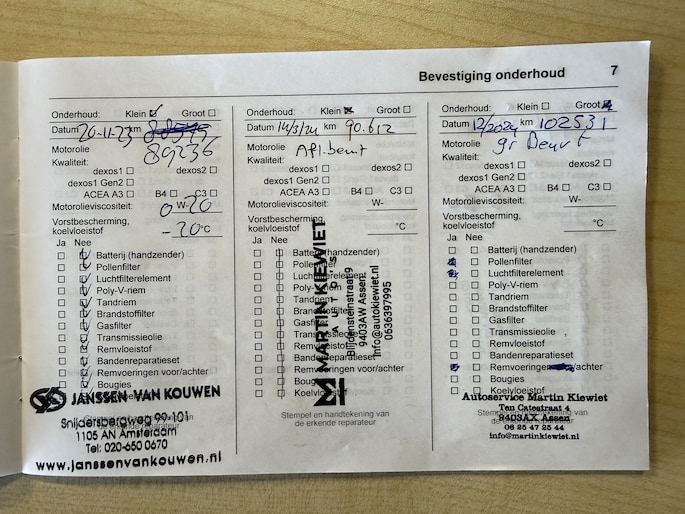 Bevestiging onderhoud 7
Onderhoud: Klein Groot
Datum 20-11-23 km
Motorolie 89236
Kwaliteit:
dexos1 dexos2
dexos1 Gen2
ACEA A3 B4 C3
Motorolieviscositeit: 0 W-20
Vorstbescherming,
koelvloeistof -20 °C
Ja Nee
Batterij (handzender)
Pollenfilter
Luchtfilterelement
Poly-V-riem
Tandriem
Brandstoffilter
Gasfilter
Transmissieolie
Remvloeistof
Bandenreparatieset
Remvoeringen voor/achter
Bougies
JANSSEN VAN KOUWEN
Snijdersbergweg 99-101
1105 AN Amsterdam
Tel: 020-650 0670
www.janssenvankouwen.nl
Onderhoud: Klein Groot
Datum 14/3/24 km 90.612
Motorolie Afl.beurt
Kwaliteit:
dexos1 dexos2
dexos1 Gen2
ACEA A3 B4 C3
Motorolieviscositeit: W-
Vorstbescherming,
koelvloeistof °C
Ja Nee
Batterij (handzender)
Pollenfilter
Luchtfilterelement
Poly-V-riem
Tandriem
Brandstoffilter
Gasfilter
Transmissieolie
Remvloeistof
Bandenreparatieset
Remvoeringen voor/achter
Bougies
Koelvloeistof
MARTIN KIEWIET
AUTO'S
Blijdensteinstraat 9
9403AW Assen
info@autokiewiet.nl
0636397995
Stempel en handtekening van
de erkende reparateur
Onderhoud: Klein Groot
Datum 12/2024 km 102531
Motorolie gr Beurt
Kwaliteit:
dexos1 dexos2
dexos1 Gen2
ACEA A3 B4 C3
Motorolieviscositeit: W-
Vorstbescherming,
koelvloeistof °C
Ja Nee
Batterij (handzender)
Pollenfilter
Luchtfilterelement
Poly-V-riem
Tandriem
Brandstoffilter
Gasfilter
Transmissieolie
Remvloeistof
Bandenreparatieset
Remvoeringen /achter
Bougies
Koelvloeistof
Autoservice Martin Kiewiet
Ten Catestraat 4
9403AX Assen
06 25 47 25 44
info@martinkiewiet.nl
de erkende reparateur